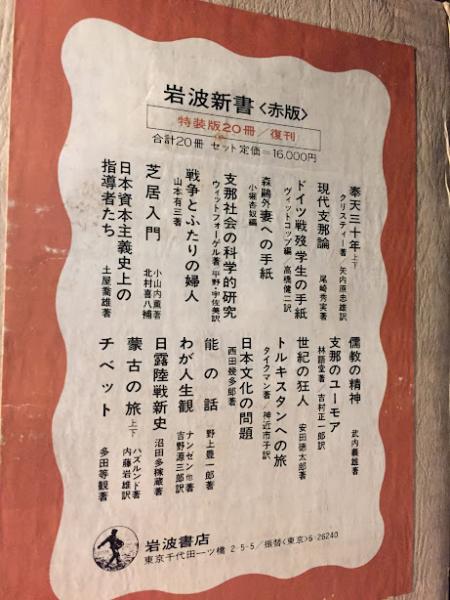 岩波新書〈赤版〉
特装版20冊/復刊
合計20冊 セット定価=16,000円
奉天三十年 上下
クリスティー著 矢内原忠雄訳
現代支那論 尾崎秀実著
ドイツ戦歿学生の手紙
ヴィットコップ編/高橋健二訳
森鷗外 妻への手紙
小堀杏奴編
支那社会の科学的研究
ウィットフォーゲル著 平野・宇佐美訳
戦争とふたりの婦人
山本有三著
芝居入門 小山内薫著
北村喜八補
日本資本主義史上の
指導者たち 土屋喬雄著
儒教の精神 武内義雄著
支那のユーモア
林語堂著/吉村正一郎訳
世紀の狂人 安田徳太郎著
トルキスタンへの旅
タイクマン著/神近市子訳
日本文化の問題
西田幾多郎著
能の話 野上豊一郎著
わが人生観 ナンゼン他著
吉野源三郎訳
日露陸戦新史 沼田多稼蔵著
蒙古の旅 上下 ハズルンド著
内藤岩雄訳
チベット 多田等観著
岩波書店
東京千代田一ツ橋 2-5-5/振替〈東京〉6-26240